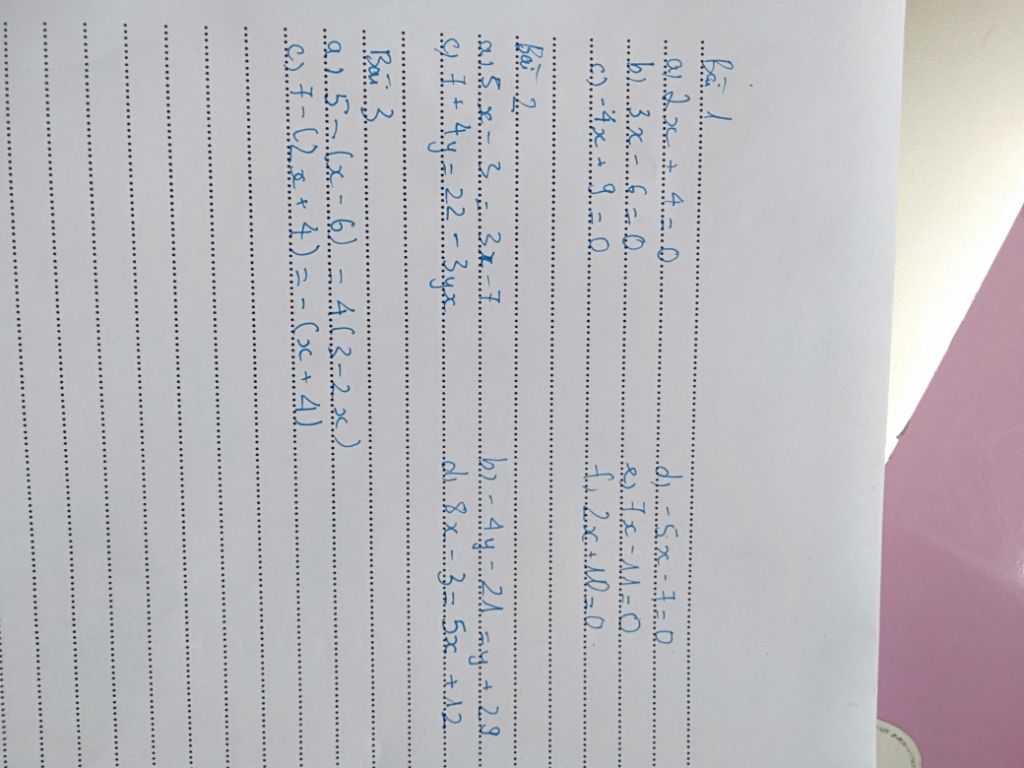 Bài 1
a, 2x + 4 = 0 d, -5x - 7 = 0
b, 3x - 6 = 0 e, 7x - 11 = 0
c, -4x + 9 = 0 f, 2x + 10 = 0
Bài 2
a, 5x - 3 = 3x - 7 b, -4y - 21 = y + 29
c, 7 + 4y = 22 - 3yx d, 8x - 3 = 5x + 12
Bài 3
a, 5 - (x - 6) = 4(3 - 2x)
c, 7 - (2x + 4) = -(x + 4)